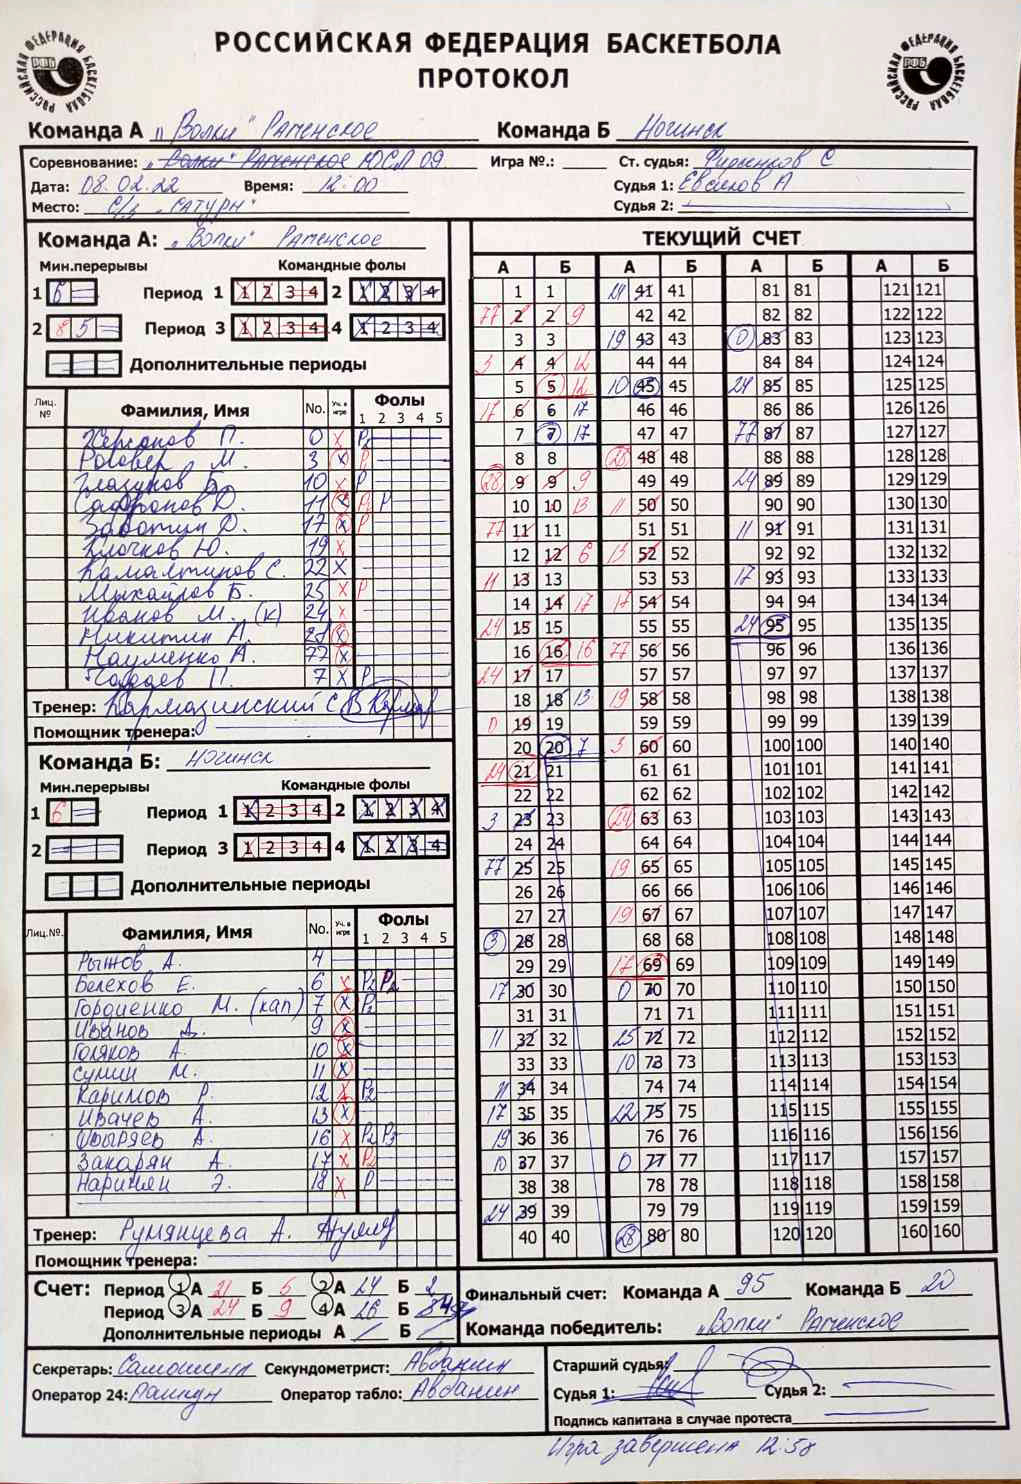 РОССИЙСКАЯ ФЕДЕРАЦИЯ БАСКЕТБОЛА
ПРОТОКОЛ
Команда А "Волки" Раменское Команда Б Ногинск
Соревнование: "Волки" Раменское ЮСЛ 09 Игра №.: Ст. судья: С
Дата: 08.02.22 Время: 12:00 Судья 1: Евсиков А
Место: С/з "Сатурн" Судья 2:
Команда А: "Волки" Раменское
ТЕКУЩИЙ СЧЕТ
Мин.перерывы Командные фолы
1 6 Период 1 1 2 3 4 2 1 2 3 4
2 8 5 Период 3 1 2 3 4 4 1 2 3 4
Дополнительные периоды
Лиц. № Фамилия, Имя No. Уч. в игре Фолы 1 2 3 4 5
П. 0 X P2
Роговер М. 3 X P
Глазунов Б. 10 X P
Сафронов Д. 11 X P2 P
Заботин Д. 17 X P
Клочков Ю. 19 X
С. 22 X
Михайлов Б. 25 X P
Иванов М. (к) 24 X
Никитин А. 28 X
Науменко А. 77 X
П. 7 X P
Тренер: Кармазинский С В
Помощник тренера:
Команда Б: Ногинск
Мин.перерывы Командные фолы
1 6 Период 1 1 2 3 4 2 1 2 3 4
2 Период 3 1 2 3 4 4 1 2 3 4
Дополнительные периоды
Лиц.№. Фамилия, Имя No. Уч. в игре Фолы 1 2 3 4 5
Рыжов А. 4
Белехов Е. 6 X P2 P2
Гордиенко М. (кап) 7 X P2
Иванов Д. 9 X
Голяков А. 10 X
Сумин М. 11 X
Каримов Р. 12 X P2
Ивачев А. 13 X
А. 16 X P2 P3
Закарян А. 17 X P2
Нариман Э. 18 X P
Тренер: Румянцева А.
Помощник тренера:
А Б А Б А Б А Б
1 1 24 41 41 81 81 121 121
77 2 2 9 42 42 82 82 122 122
3 3 19 43 43 0 83 83 123 123
3 4 4 12 44 44 84 84 124 124
5 5 12 10 45 45 24 85 85 125 125
17 6 6 17 46 46 86 86 126 126
7 7 17 47 47 77 87 87 127 127
8 8 28 48 48 88 88 128 128
28 9 9 9 49 49 24 89 89 129 129
10 10 13 11 50 50 90 90 130 130
77 11 11 51 51 11 91 91 131 131
12 12 6 13 52 52 92 92 132 132
11 13 13 53 53 17 93 93 133 133
14 14 17 17 54 54 94 94 134 134
24 15 15 55 55 24 95 95 135 135
16 16 16 77 56 56 96 96 136 136
24 17 17 57 57 97 97 137 137
18 18 13 19 58 58 98 98 138 138
0 19 19 59 59 99 99 139 139
20 20 7 3 60 60 100 100 140 140
24 21 21 61 61 101 101 141 141
22 22 62 62 102 102 142 142
3 23 23 24 63 63 103 103 143 143
24 24 64 64 104 104 144 144
77 25 25 19 65 65 105 105 145 145
26 26 66 66 106 106 146 146
27 27 19 67 67 107 107 147 147
3 28 28 68 68 108 108 148 148
29 29 17 69 69 109 109 149 149
17 30 30 0 70 70 110 110 150 150
31 31 71 71 111 111 151 151
11 32 32 25 72 72 112 112 152 152
33 33 10 73 73 113 113 153 153
11 34 34 74 74 114 114 154 154
17 35 35 22 75 75 115 115 155 155
19 36 36 76 76 116 116 156 156
10 37 37 0 77 77 117 117 157 157
38 38 78 78 118 118 158 158
24 39 39 79 79 119 119 159 159
40 40 28 80 80 120 120 160 160
Счет: Период 1 А 21 Б 5 2 А 24 Б 2
Период 3 А 24 Б 9 4 А 26 Б 4
Дополнительные периоды А Б
Финальный счет: Команда А 95 Команда Б 20
Команда победитель: "Волки" Раменское
Секретарь: Секундометрист: Авбанин
Оператор 24: Оператор табло: Авбанин
Старший судья:
Судья 1: Судья 2:
Подпись капитана в случае протеста
Игра завершена 12:58